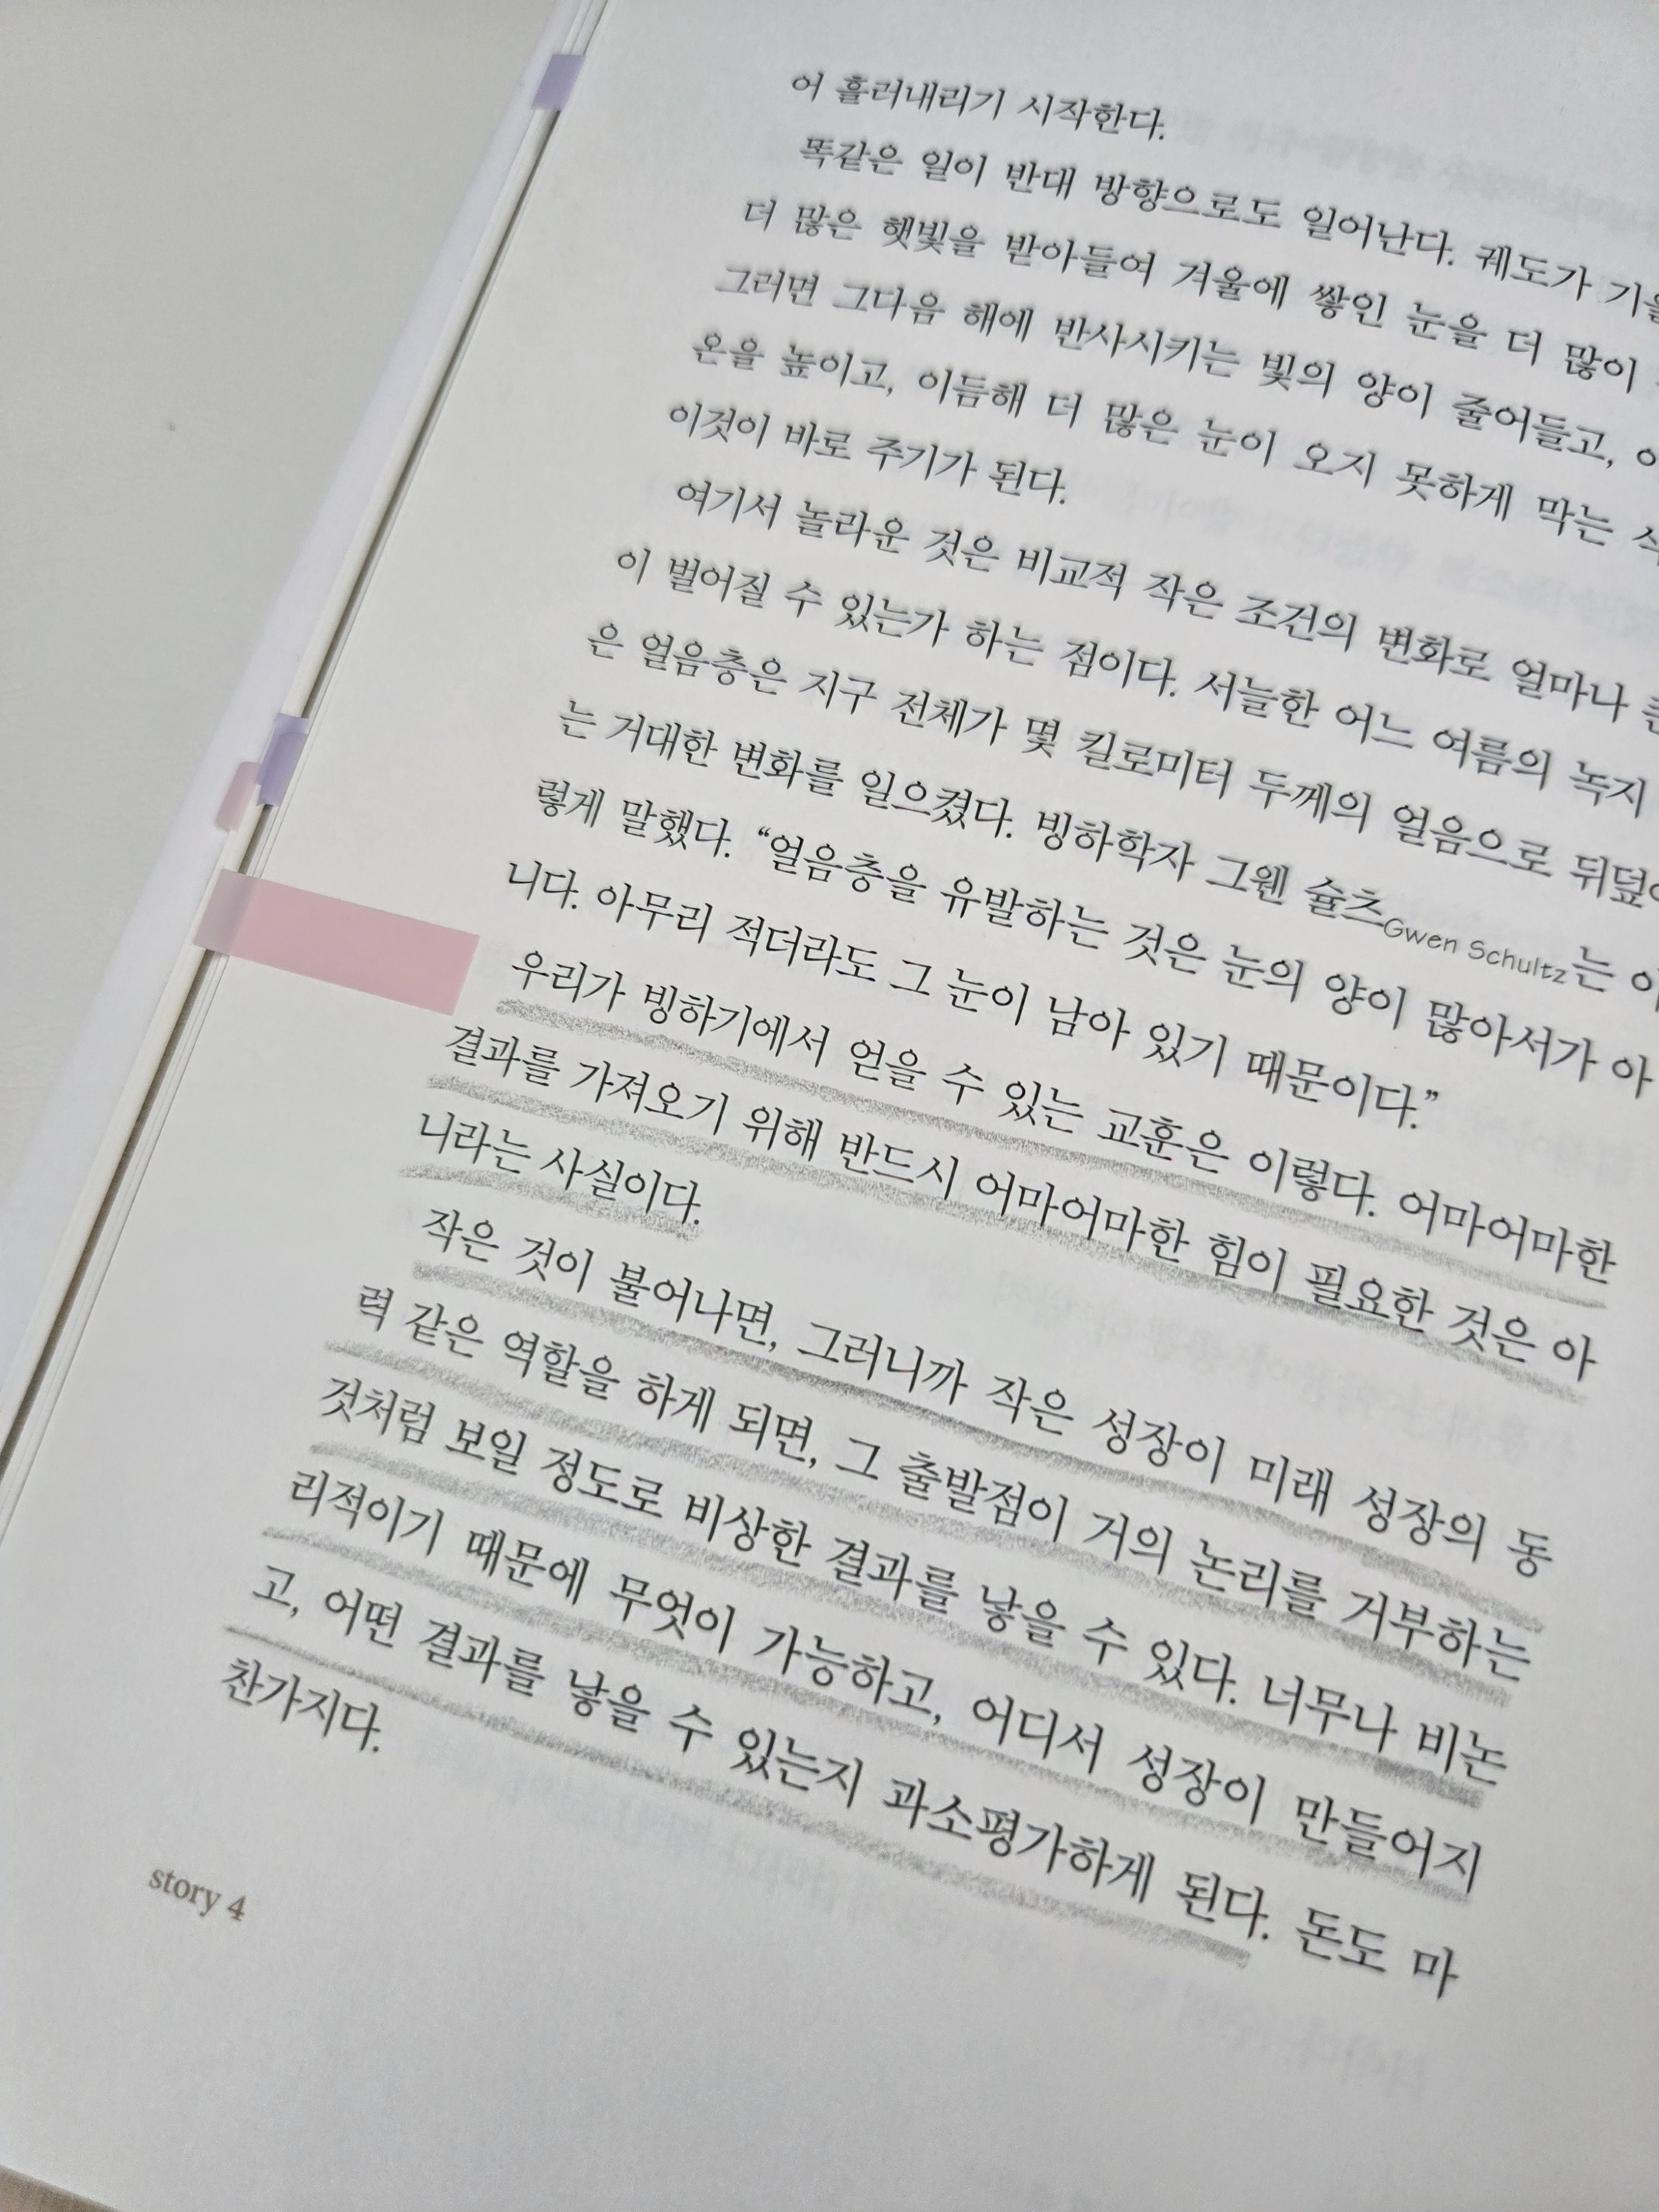 어 흘러내리기 시작한다.
똑같은 일이 반대 방향으로도 일어난다. 궤도가
더 많은 햇빛을 받아들여 겨울에 쌓인 눈을 더 많이
그러면 그다음 해에 반사시키는 빛의 양이 줄어들고,
온을 높이고, 이듬해 더 많은 눈이 오지 못하게 막는
이것이 바로 주기가 된다.
여기서 놀라운 것은 비교적 작은 조건의 변화로 얼마나
이 벌어질 수 있는가 하는 점이다. 서늘한 어느 여름의 녹지
은 얼음층은 지구 전체가 몇 킬로미터 두께의 얼음으로
는 거대한 변화를 일으켰다. 빙하학자 그웬 슐츠Gwen Schultz는
렇게 말했다. “얼음층을 유발하는 것은 눈의 양이 많아서가 아
니다. 아무리 적더라도 그 눈이 남아 있기 때문이다.”
우리가 빙하기에서 얻을 수 있는 교훈은 이렇다. 어마어마한
결과를 가져오기 위해 반드시 어마어마한 힘이 필요한 것은 아
니라는 사실이다.
작은 것이 불어나면, 그러니까 작은 성장이 미래 성장의 동
력 같은 역할을 하게 되면, 그 출발점이 거의 논리를 거부하는
것처럼 보일 정도로 비상한 결과를 낳을 수 있다. 너무나 비논
리적이기 때문에 무엇이 가능하고, 어디서 성장이 만들어지
고, 어떤 결과를 낳을 수 있는지 과소평가하게 된다. 돈도 마
찬가지다.
story 4